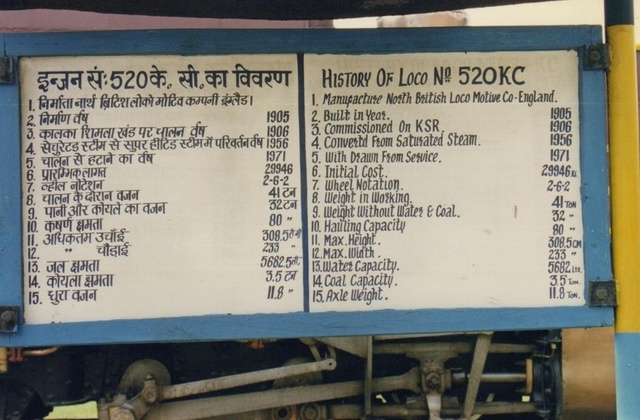 इन्जन सं: 520 के. सी. का विवरण
1. निर्माता नार्थ ब्रिटिश लोको मोटिव कम्पनी इंग्लैड।
2. निर्माण वर्ष 1905
3. कालका शिमला खंड पर चालन वर्ष 1906
4. सेचुरेटड स्टीम से सूपर हीटिड स्टीम में परिवर्तन वर्ष 1956
5. चालन से हटाने का वर्ष 1971
6. प्रारम्भिक लागत 29946
7. व्हील नोटेशन 2-6-2
8. चालन के दौरान वजन 41 टन
9. पानी और कोयले का वजन 32 टन
10. कर्षण क्षमता 80 "
11. अधिकतम उचाँई 308.5 से॰मी
12. " चौड़ाई 233 "
13. जल क्षमता 5682 ली॰
14. कोयला क्षमता 3.5 टन
15. धुरा वजन 11.8 "
HISTORY OF LOCO Nº 520 KC
1. Manufacture North British Loco Motive Co-England.
2. Built in Year. 1905
3. Commissioned On KSR. 1906
4. Converted From Saturated Steam. 1956
5. With Drawn From Service. 1971
6. Initial Cost. 29946 RS.
7. Wheel Notation. 2-6-2
8. Weight in Working. 41 TON
9. Weight Without Water & Coal. 32 "
10. Hauting Capacity 80 "
11. Max. Height. 308.5 CM
12. Max. Width. 233 "
13. Water Capacity. 5682 LTR.
14. Coal Capacity. 3.5 TON.
15. Axle Weight. 11.8 TON.